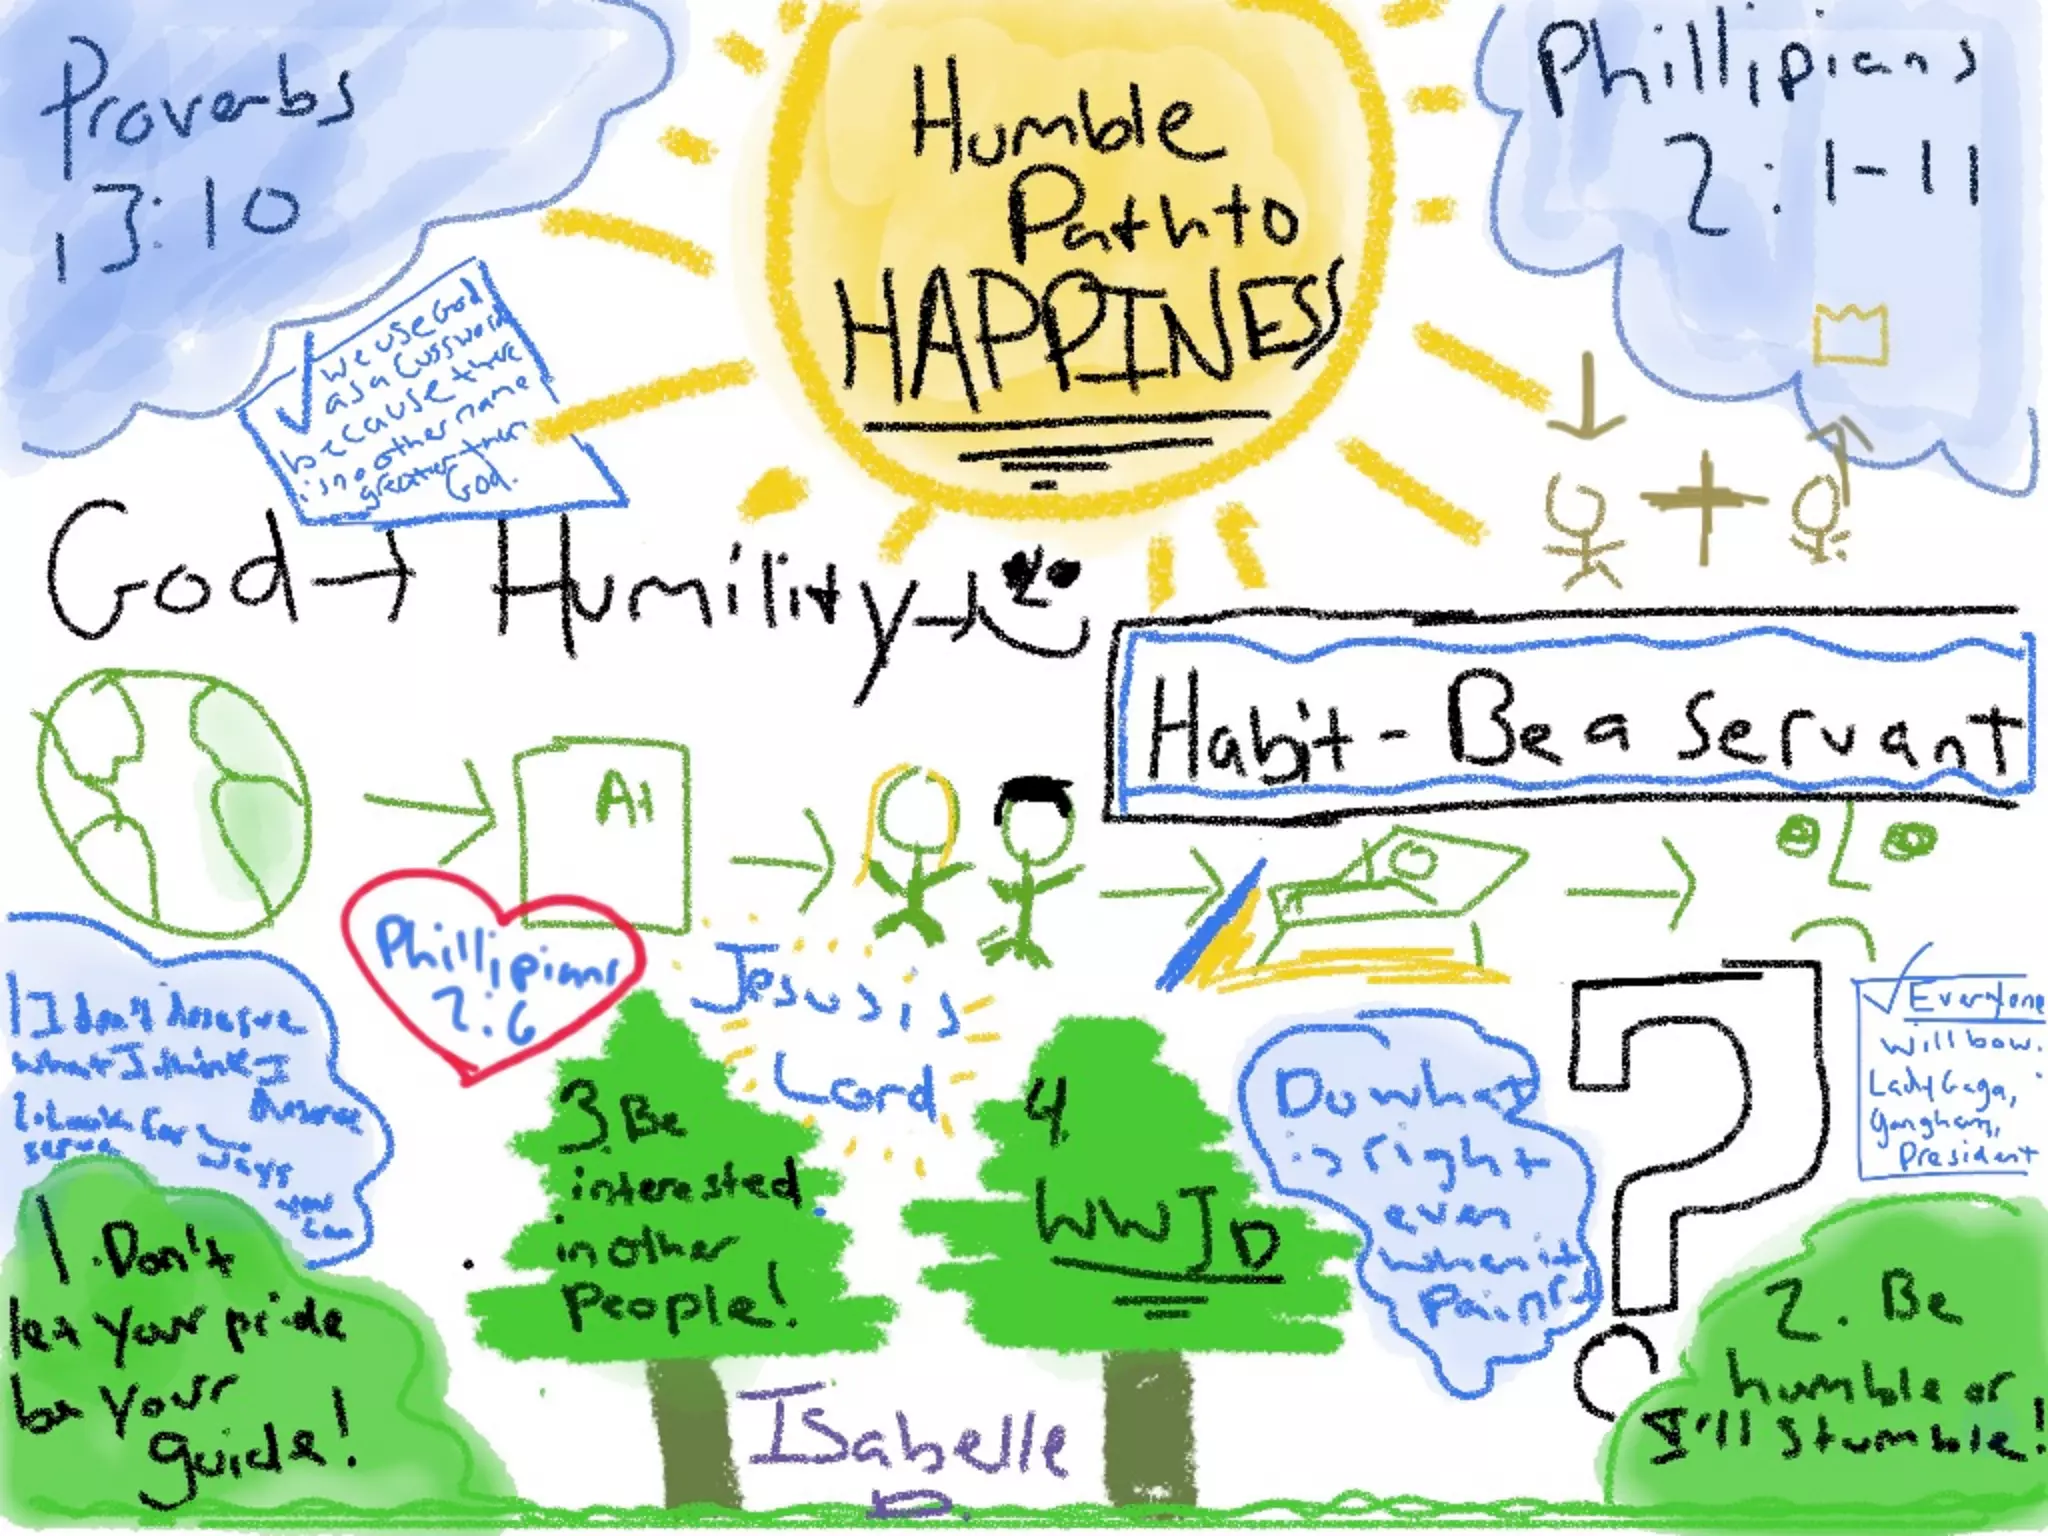 Proverbs
13:10
Humble
Path to
HAPPINESS
Phillipians
2:1-11
we use God
as a Cussword
because there
is no other name
greater than
God.
God → Humility →
Habit - Be a servant
A+
Phillipians
2:6
Jesus is
Lord
1 I don't deserve
what I think I
deserve
2. Look for ways you can
serve
1. Don't
let your pride
be your
guide!
3. Be
interested
in other
People!
4.
WWJD
Do what
is right
even
when it
Pains!
?
Everyone
will bow.
Lady Gaga,
Gangham,
President
2. Be
humble or
I'll stumble!
Isabelle
D.